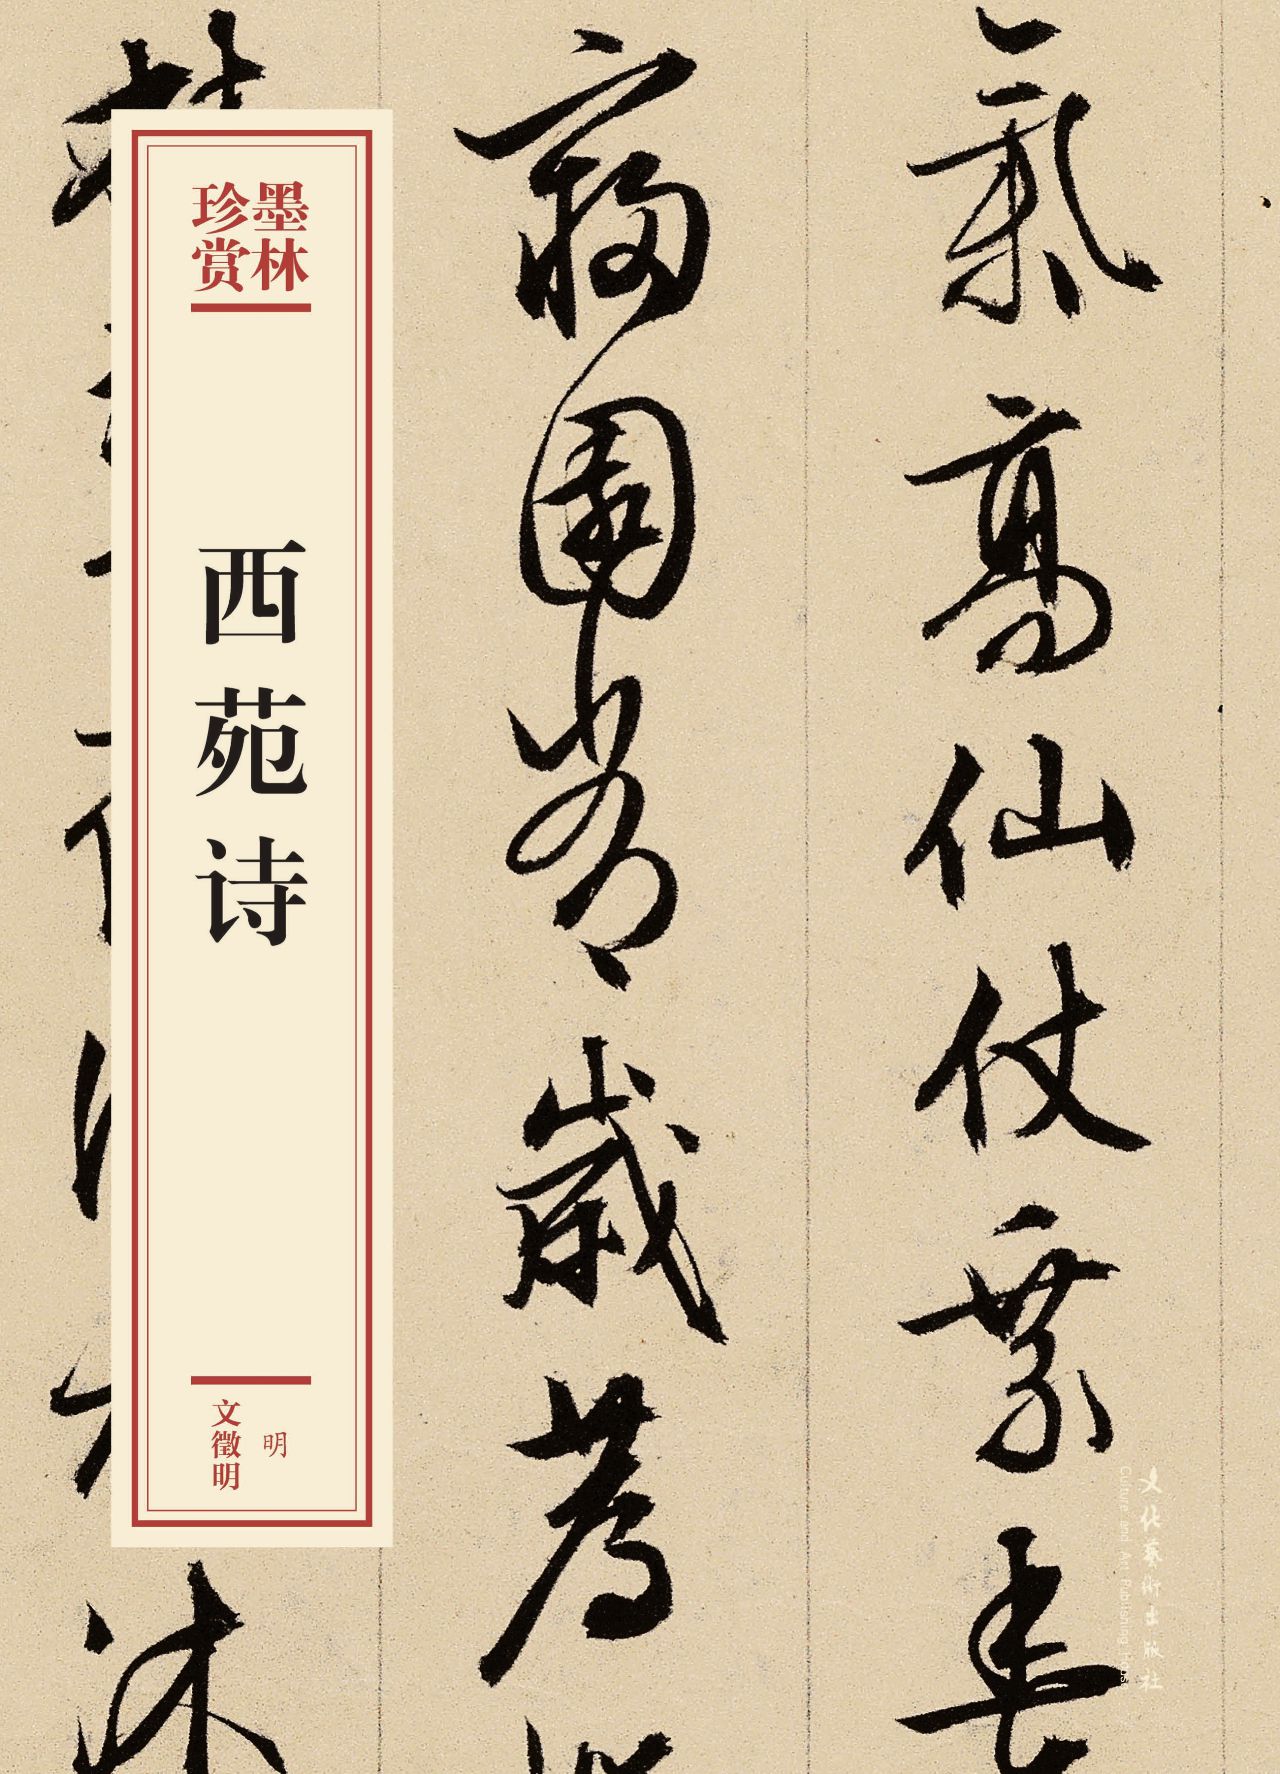 氣高仙仗乘春
寢園常歲薦
林
沐
墨林
珍赏
西苑诗
明
文徵明
文化藝術出版社
Culture and Art Publishing House